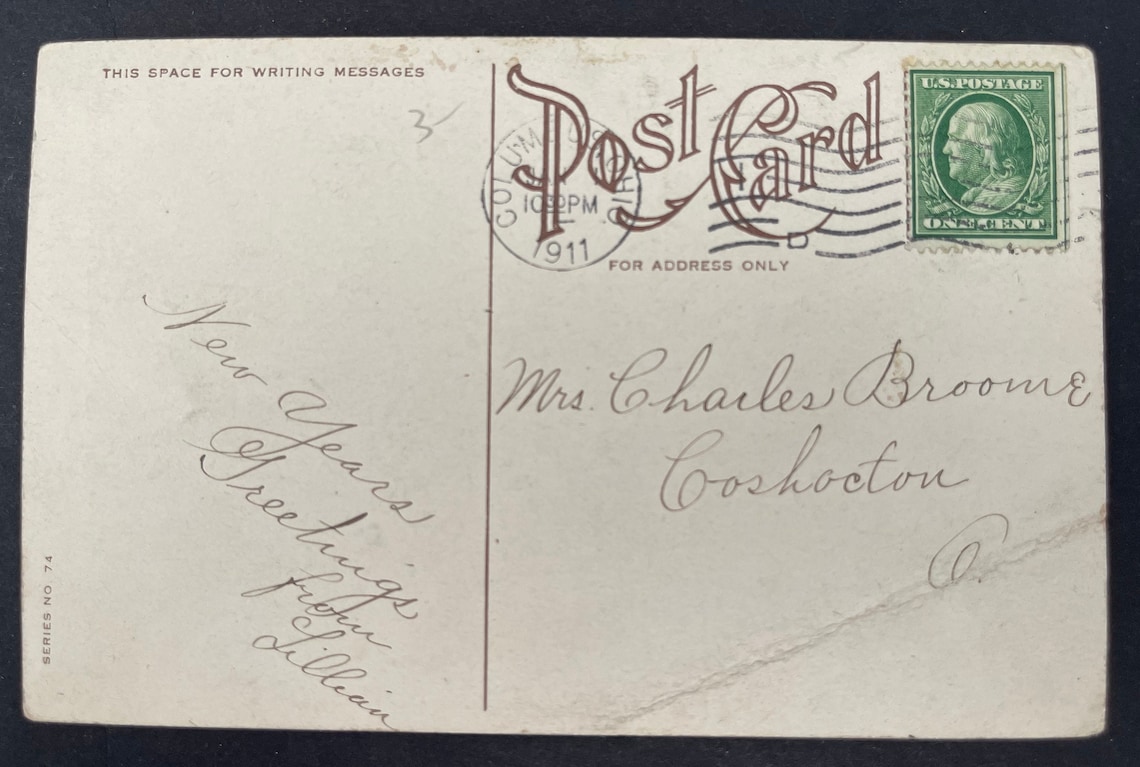 THIS SPACE FOR WRITING MESSAGES
3
Post Card
COLUMBUS OHIO
10 30 PM
1911
D
U.S. POSTAGE
ONE CENT
FOR ADDRESS ONLY
New Years
Greetings
from
Lillian
Mrs. Charles Broome
Coshocton
O.
SERIES NO. 74